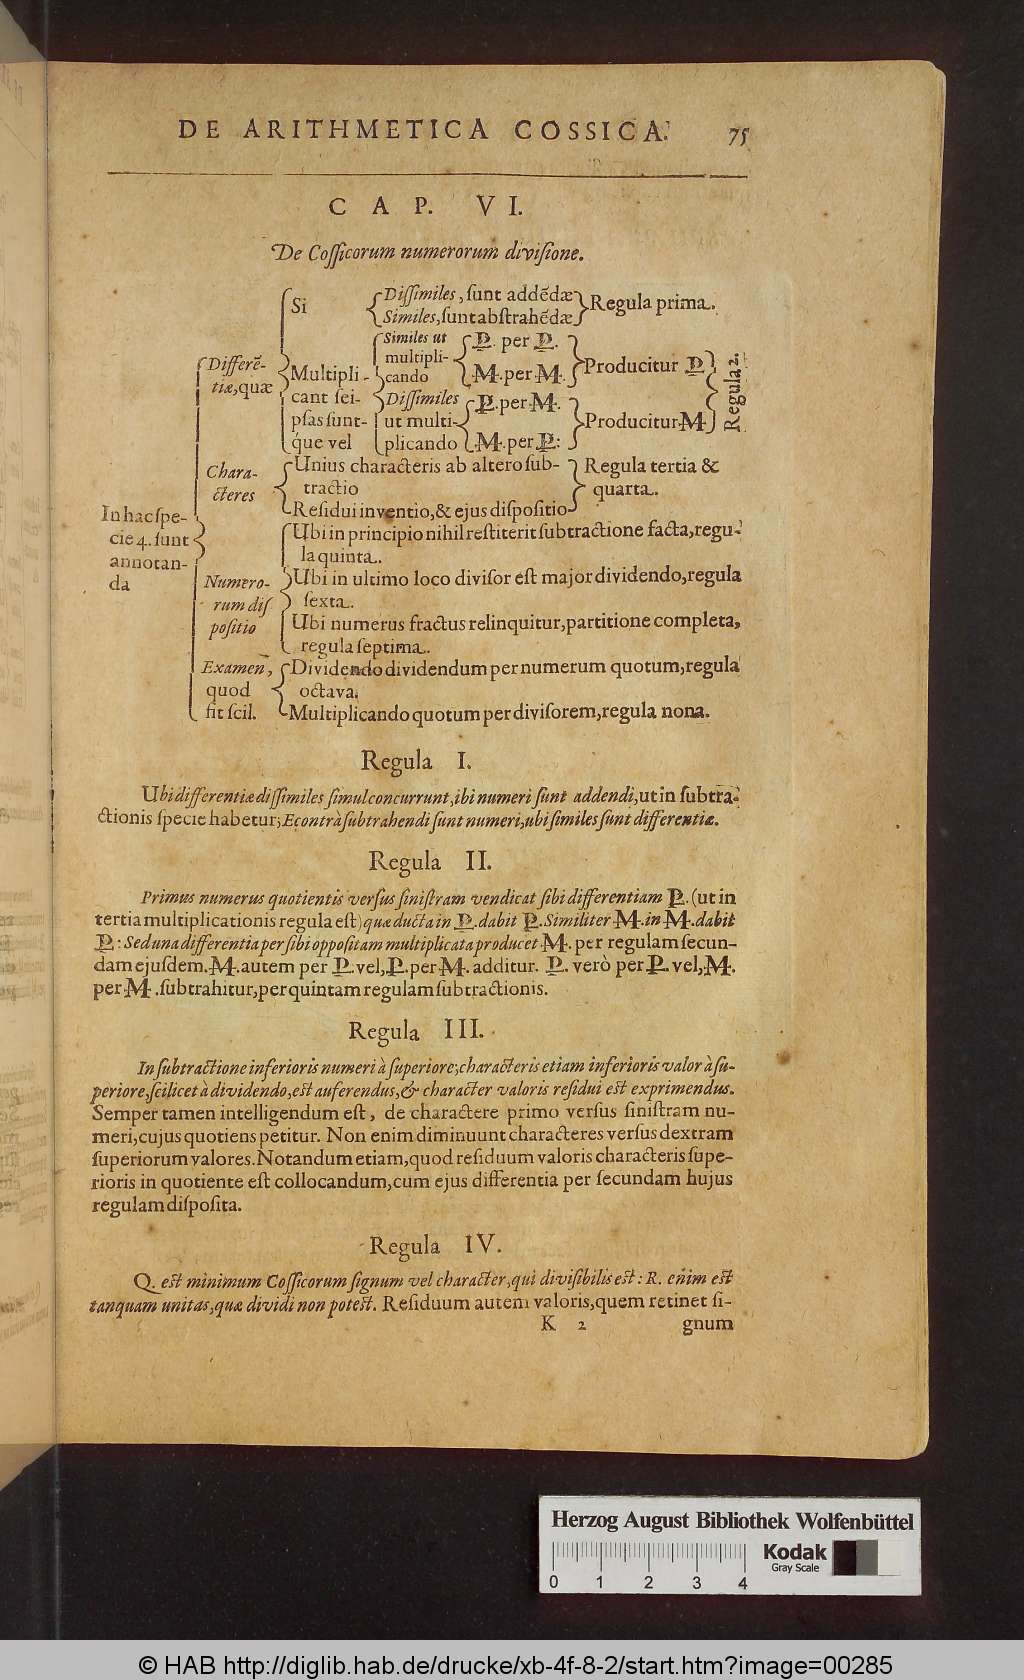 DE ARITHMETICA COSSICA. 75
CAP. VI.
De Coſſicorum numerorum diviſione.
In hac ſpe-
cie 4. ſunt
annotan-
da
Differẽ-
tiæ, quæ
Si
Diſſimiles, ſunt addẽdæ
Similes, ſunt abſtrahẽdæ
Regula prima.
Multipli-
cant ſei-
pſas ſunt-
que vel
Similes ut
multipli-
cando
P. per P.
M. per M.
Producitur P
Diſſimiles
ut multi-
plicando
P. per M.
M. per P:
Producitur M.
Regula 2.
Chara-
cteres
Unius characteris ab altero ſub-
tractio
Reſidui inventio, & ejus diſpoſitio
Regula tertia &
quarta.
Numero-
rum diſ
poſitio
Ubi in principio nihil reſtiterit ſubtractione facta, regu-
la quinta.
Ubi in ultimo loco diviſor eſt major dividendo, regula
ſexta.
Ubi numerus fractus relinquitur, partitione completa,
regula ſeptima.
Examen,
quod
fit ſcil.
Dividendo dividendum per numerum quotum, regula
octava.
Multiplicando quotum per diviſorem, regula nona.
Regula I.
Ubi differentiæ diſſimiles ſimul concurrunt, ibi numeri ſunt addendi, ut in ſubtra-
ctionis ſpecie habetur; E contrà ſubtrahendi ſunt numeri, ubi ſimiles ſunt differentiæ.
Regula II.
Primus numerus quotientis verſus ſiniſtram vendicat ſibi differentiam P. (ut in
tertia multiplicationis regula eſt) quæ ducta in P. dabit P. Similiter M. in M. dabit
P: Sed una differentia per ſibi oppoſitam multiplicata producet M. per regulam ſecun-
dam ejuſdem. M. autem per P. vel, P. per M. additur. P. verò per P. vel, M.
per M. ſubtrahitur, per quintam regulam ſubtractionis.
Regula III.
In ſubtractione inferioris numeri à ſuperiore; characteris etiam inferioris valor à ſu-
periore, ſcilicet à dividendo, eſt auferendus, & character valoris reſidui eſt exprimendus.
Semper tamen intelligendum eſt, de charactere primo verſus ſiniſtram nu-
meri, cujus quotiens petitur. Non enim diminuunt characteres verſus dextram
ſuperiorum valores. Notandum etiam, quod reſiduum valoris characteris ſupe-
rioris in quotiente eſt collocandum, cum ejus differentia per ſecundam hujus
regulam diſpoſita.
Regula IV.
Q. eſt minimum Coſſicorum ſignum vel character, qui diviſibilis eſt: R. enim eſt
tanquam unitas, quæ dividi non poteſt. Reſiduum autem valoris, quem retinet ſi-
K 2 gnum
Herzog August Bibliothek Wolfenbüttel
Kodak
Gray Scale
0 1 2 3 4
© HAB http://diglib.hab.de/drucke/xb-4f-8-2/start.htm?image=00285